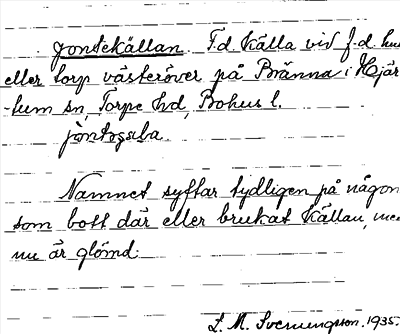 Jontekällan. F.d. källa vid f.d. hus
eller torp västeröver på Bränna i Hjär-
tum sn, Torpe hd, Bohus l.
Namnet syftar tydligen på någon
som bott där eller brukat källan, men
nu är glömd.
L. M. Svenungsson. 1935.